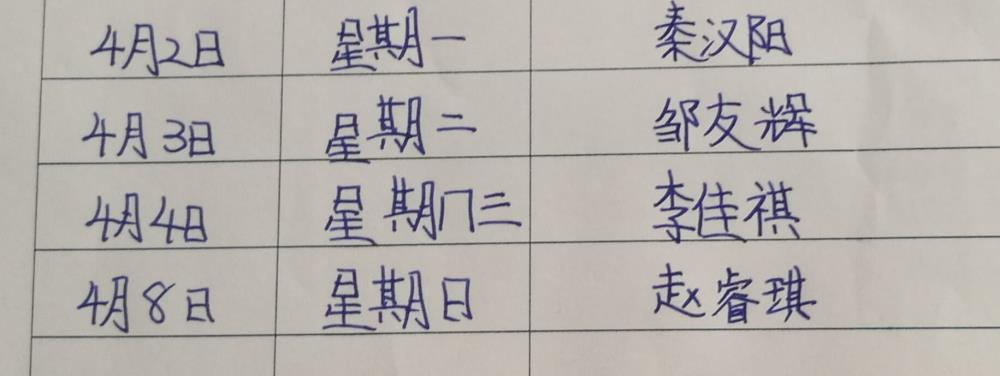 4月2日 星期一 秦汉阳
4月3日 星期二 邹友辉
4月4日 星期三 李佳祺
4月8日 星期日 赵睿琪